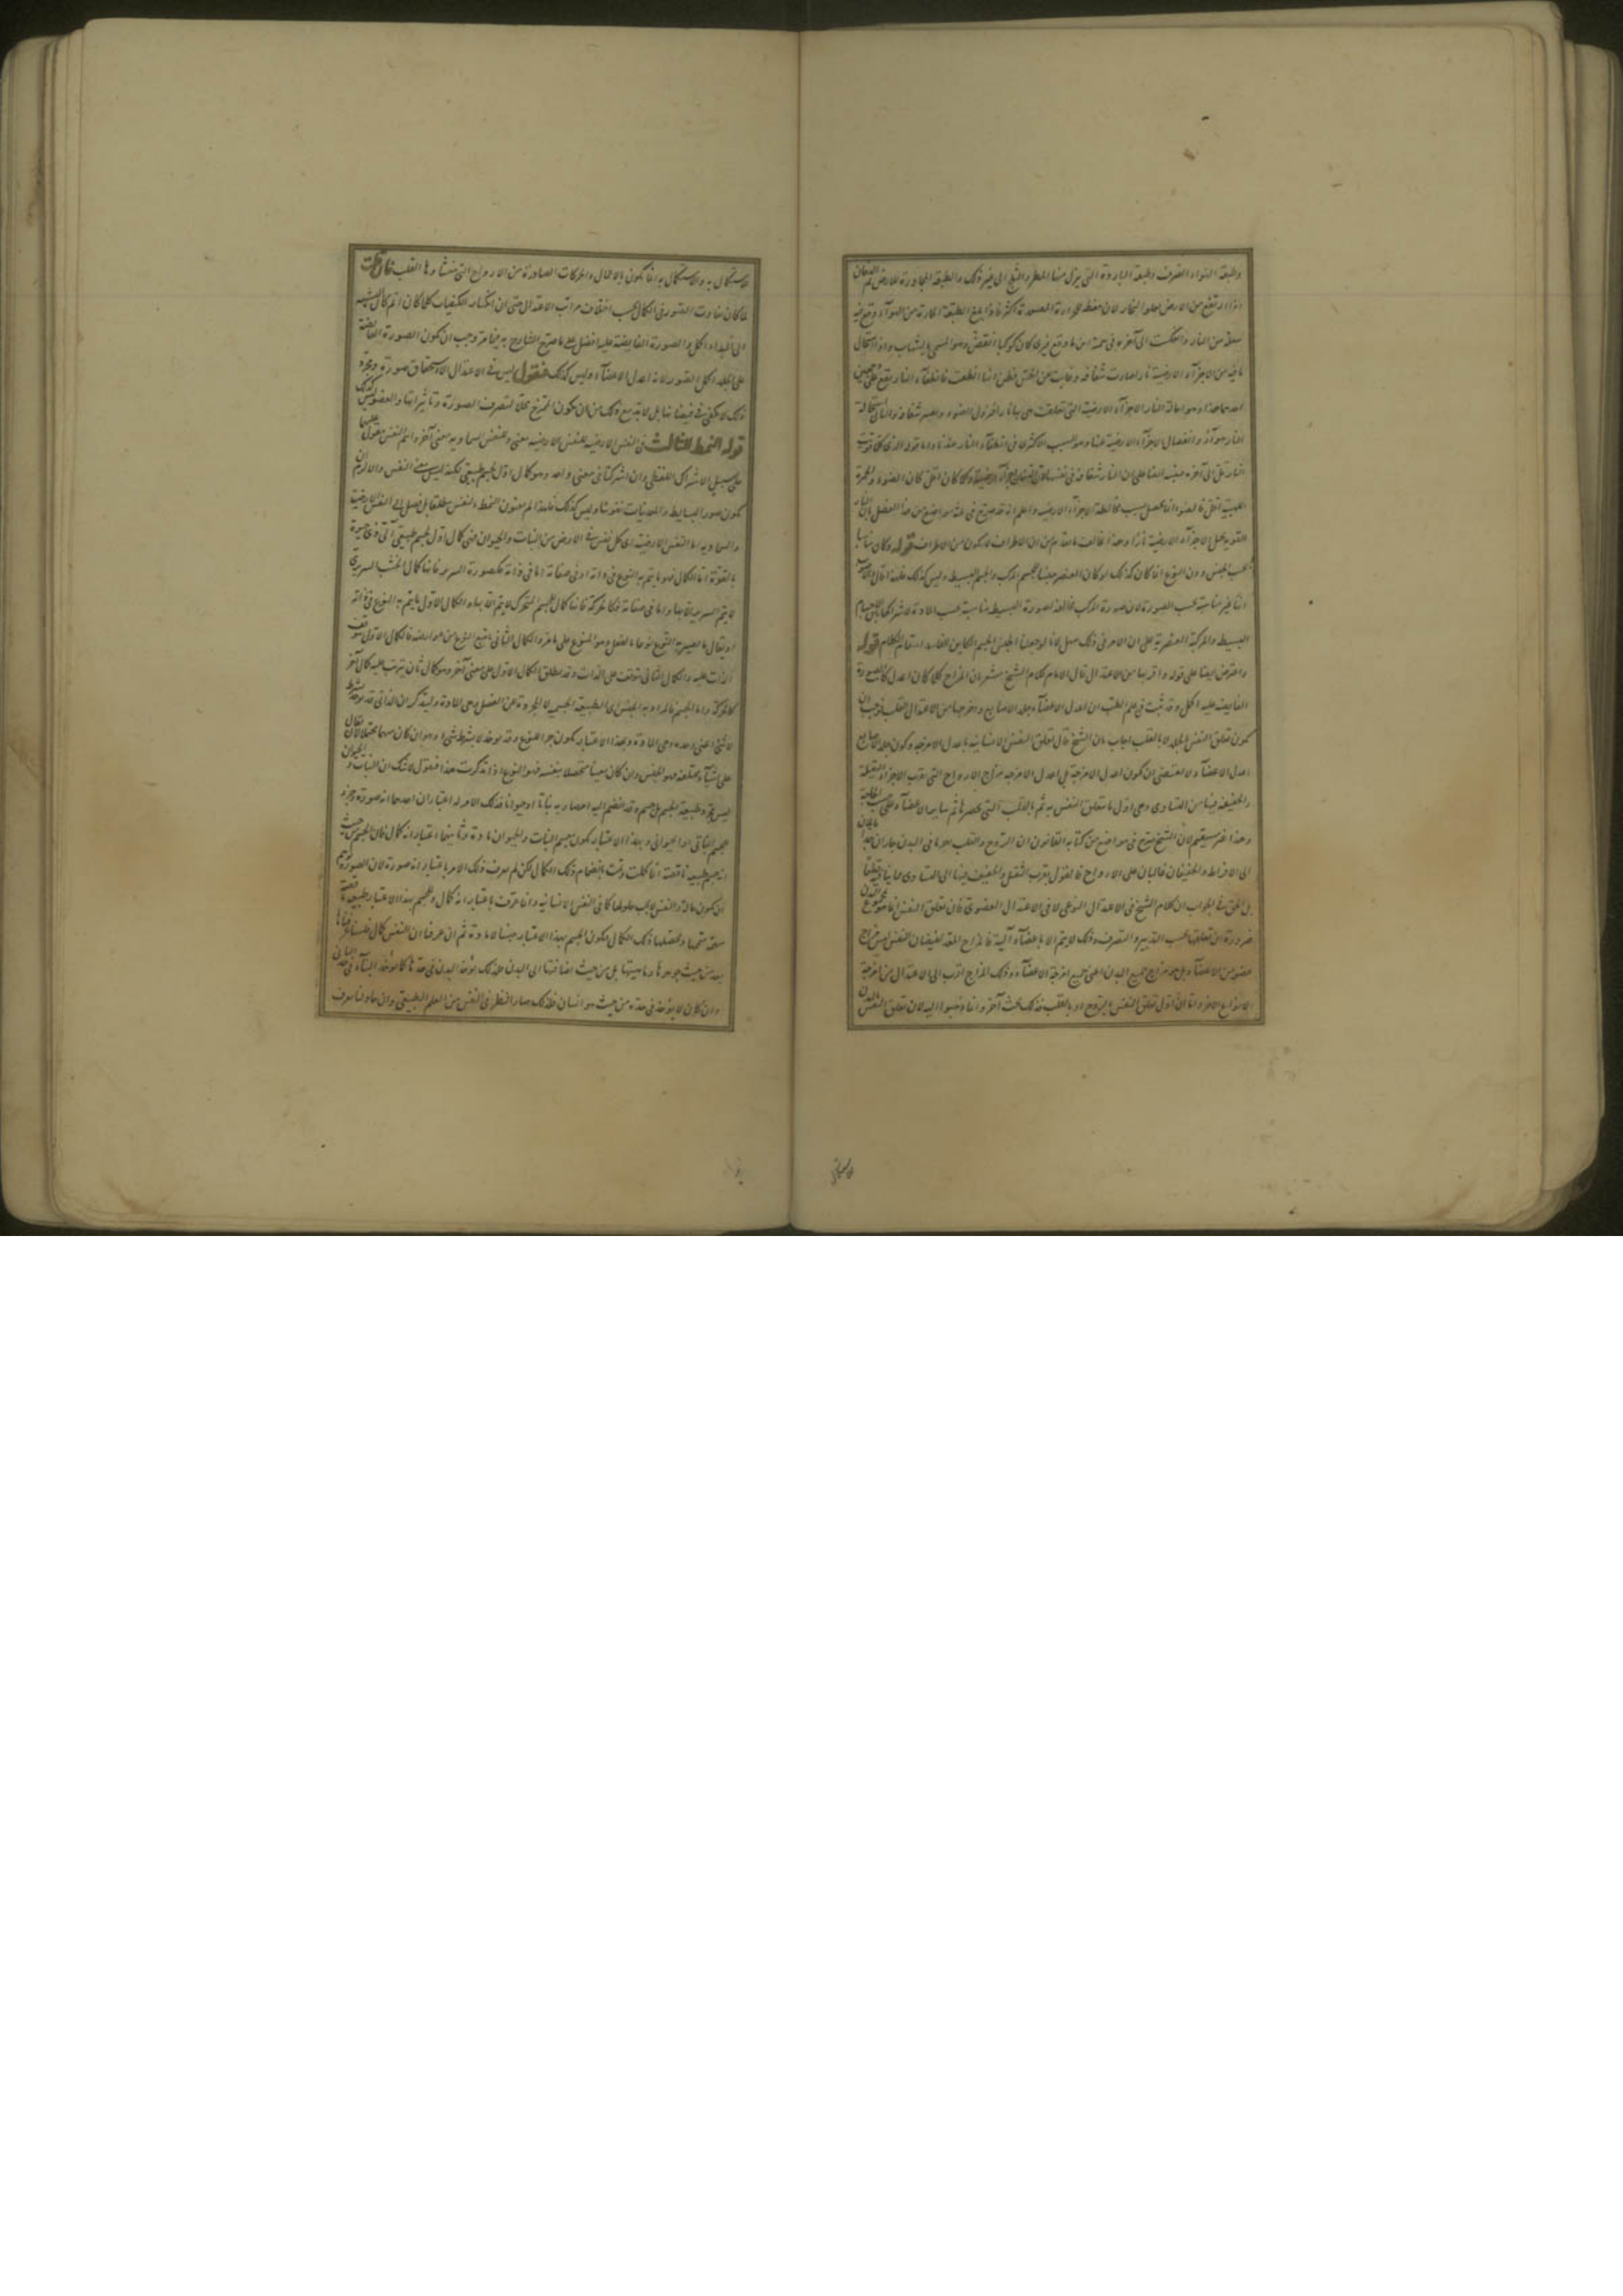 وطبقة الهواء الصرف وطبقة الباردة التى ينزل منها المطر والثلج الى غير ذلك والطبقة المجاورة للارض ثم الدخان
اذا ارتفع من الارض يعلو البخار لان الصورة اكثر فاذا بلغ الطبقة الحارة من الهواء وقع فيه
شعلة من النار كان كوكبا انقض وهو المسمى بالشهاب واذا استحال
ما فيه من الاجزاء الارضية نارا صارت شفافة وغابت عن الحس فظن انها انطفت فانطفاء النار يقع على وجهين
احدهما هذا وهو احالة النار الاجزاء الارضية التى تعلقت هى بها نارا فيزول الضوء ويصير شفافة والثانى استحالة
النار هواء وانفصال الاجزاء الارضية عنها وهو السبب الاكثرى فى انطفاء النار عندنا واما قوله
النار على ان النار شفافة فى نفسها وكلما كان اقل كان الضوء والحمرة
اللهيبية اقل فالضوء انما يحصل بسبب مخالطة الاجزاء الارضية واعلم انه قد صرح فى عدة مواضع من هذا الفصل بان النار
القوية تحيل الاجزاء الارضية نارا وهذا مخالف لما تقدم من ان الاطراف لا يتكون من الاطراف قوله وكان مناسبا
بحسب الجنس دون النوع انما كان كذلك لو كان العنصر جنسا للجسم المركب والجسم البسيط وليس كذلك
مناسبة بحسب الصورة لان صورة المركب مخالفة لصورة البسيط مناسبة بحسب المادة لاشتراكها بين الاجسام
البسيطة والمركبة العنصرية على ان الامر فى ذلك سهل استقام الكلام قوله
واعترض ايضا على قوله واقربها من الاعتدال قال الامام كلام الشيخ مشعر بان المزاج كلما كان اعدل كان الصورة
الفايضة عليه اكمل وقد ثبت فى علم الطب ان اعدل الاعضاء جلد الاصابع واخرجها من الاعتدال القلب فوجب ان
يكون تعلق النفس بالجلد لا بالقلب اجاب بان الشيخ قال تعلق النفس الانسانية باعدل الامزجة وكون جلد الاصابع
اعدل الاعضاء لا يقتضى ان يكون اعدل الامزجة بل اعدل الامزجة مزاج الارواح التى تقرب الاجزاء الثقيلة
والخفيفة فيها من التساوى وهى اول ما تتعلق النفس به ثم بالقلب التى تحصرها ثم بساير الاعضاء
وهذا غير مستقيم لان الشيخ صرح فى مواضع من كتابه القانون ان الروح والقلب احر ما فى البدن حاران جدا مايلان
الى الافراط والخفيفان غالبان على الارواح فالقول بقرب الثقيل والخفيف فيها الى التساوى مما ينافيه قطعا
بل الحق فى الجواب ان كلام الشيخ فى الاعتدال النوعى لا فى الاعتدال العضوى فان تعلق النفس انما هو بمجموع البدن
ضرورة ان تعلقها بحسب التدبير والتصرف وذلك لا يتم الا باعضاء آلية فالمزاج المعد لفيضان النفس ليس مزاج
عضو من الاعضاء بل هو مزاج جميع البدن اعنى جميع امزجة الاعضاء وذلك المزاج اقرب الى الاعتدال من امزجة
الانواع الاخر واما ان اول تعلق النفس بالروح او بالقلب فذلك بحث آخر وانما ذهبوا اليه لان تعلق النفس بالبدن
للاستكمال
للاستكمال به والاستكمال به انما يكون بالافعال والحركات الصادرة من الارواح التى منشاؤها القلب فان قلت
لما كان تفاوت الصور فى الكمال بحسب اختلاف مراتب الاعتدال حتى ان انكسار الكيفيات كلما كان اتم كان النسبة
الى المبداء اكمل والصورة الفايضة عليه افضل على ما صرح الشارح به فيما مر وجب ان يكون الصورة الفايضة
على الجلد اكمل الصور لانه اعدل الاعضاء وليس كذلك فنقول ليس فى الاعتدال الا استحقاق صورة ومجرد
ذلك لا يكفى فى فيضانها بل لا بد مع ذلك من ان يكون الممتزج محلا لتصرف الصورة وتاثيراتها والعضو ليس كذلك
قوله النمط الثالث فى النفس الارضية للنفس الارضية معنى وللنفس السماوية معنى آخر واسم النفس مقول عليهما
على سبيل الاشتراك اللفظى وان اشتركتا فى معنى واحد وهو كمال اول لجسم طبيعى لكنه ليس معنى النفس والا لزم ان
يكون صور البسايط والمعدنيات نفوسا وليس كذلك فلهذا لم يعنون النمط بالنفس مطلقا بل فصل الى النفس الارضية
والسماوية اما النفس الارضية اى كل نفس فى الارض من النبات والحيوان فهى كمال اول لجسم طبيعى آلى ذى حيوة
بالقوة اما الكمال فهو ما يتم به النوع فى ذاته او فى صفاته اما فى ذاته فكصورة السرير فانها كمال الخشب السريرى
لا يتم السرير الا بها واما فى صفاته فكالحركة فانها كمال للجسم المتحرك لا يتم الا بها والكمال الاول ما يتم به النوع فى ذاته
او يقال ما يصير به النوع نوعا بالفعل وهو المنوع على ما مر والكمال الثانى ما يتبع النوع من عوارضه فالكمال الاول يتوقف
الذات عليه والكمال الثانى يتوقف على الذات وقد يطلق الكمال الاول على معنى آخر وهو كمال ثان يترتب عليه كمال آخر
كالحركة واما الجسم فالمراد به الجنس اى الطبيعة الجسمية لا المجردة عن الفصل وهى المادة وليتذكر ان الذاتى قد يوخذ بشرط
لا شى اعنى وحده وهى المادة وبهذا الاعتبار يكون جزء النوع وقد يوخذ لا بشرط شى وهو ان كان مبهما محتملا لان يقال
على اشياء مختلفة فهو الجنس وان كان معينا متحصلا بنفسه فهو النوع اذا تذكرت هذا فنقول لا شك ان النبات والحيوان
ليس مجرد طبيعة الجسم بل جسم وقد انضم اليه امر صار به نباتا او حيوانا فذلك الامر له اعتباران احدهما انه صورة وجزء
للجسم النباتى او الحيوانى وبهذا الاعتبار يكون جسم النبات والحيوان مادة وثانيهما اعتبار انه كمال فان الجسم من حيث
انه جسم طبيعة ناقصة انما كملت وتمت بانضمام ذلك الكمال لكن لم يعرف ذلك الامر باعتبار انه صورة لان الصورة
ان يكون حالة والنفس لا يجب حلولها كما فى النفس الانسانية وانما عرفت باعتبار انه كمال والجسم بهذا الاعتبار طبيعة ناقصة
ذلك الكمال فيكون الجسم بهذا الاعتبار جنسا لا مادة ثم ان عرفنا ان النفس كمال فلسنا عرفناها
بعد من حيث جوهرها وماهيتها بل من حيث اضافتها الى البدن فلذلك يؤخذ البدن فى حدها كما يؤخذ البناء فى حد البانى
وان كان لا يؤخذ فى حده من حيث هو انسان فلذلك صار النظر فى النفس من العلم الطبيعى وان حاولنا معرفة